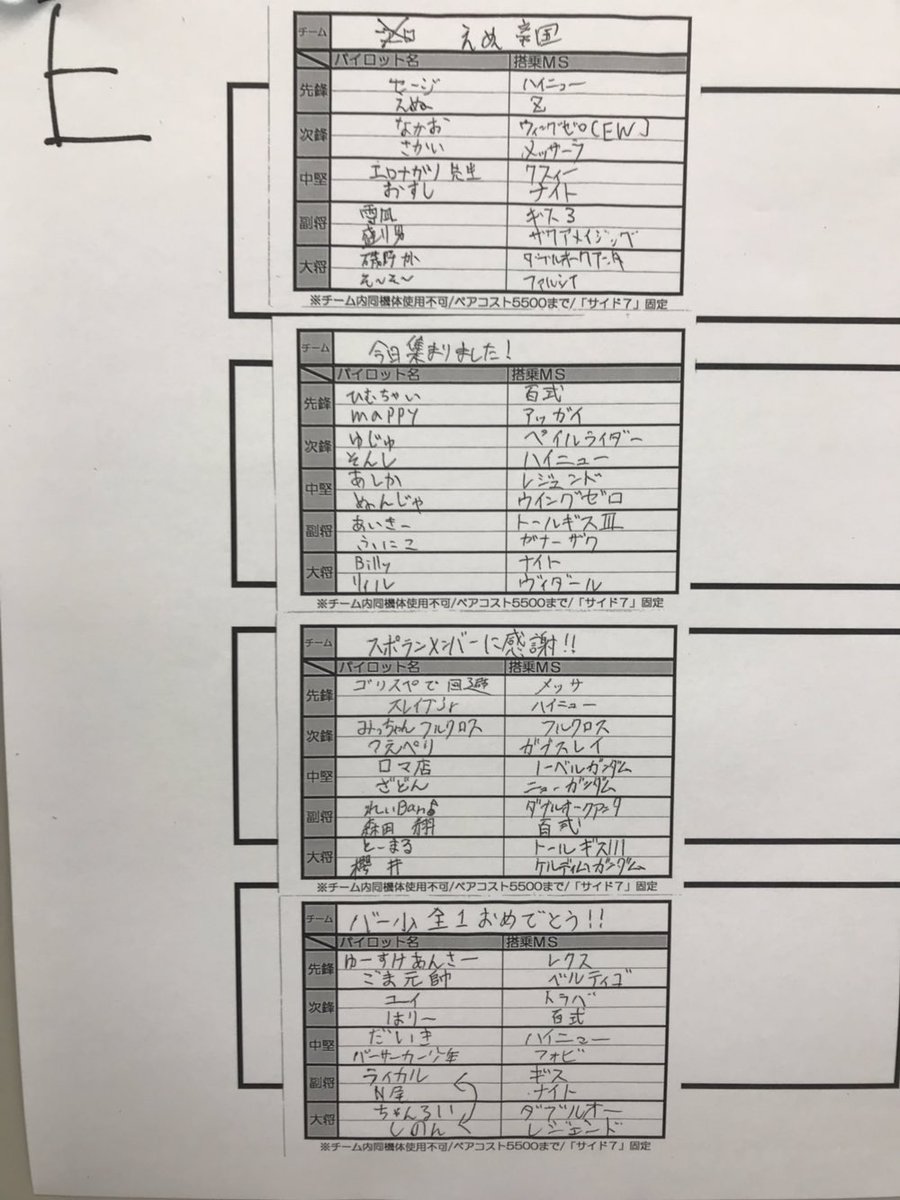 E
チーム えぬ帝国
パイロット名 搭乗MS
先鋒 セージ ハイニュー
えぬ Z
次鋒 なかお ウィングゼロ(EW)
さかい メッサーラ
中堅 エロナガノ先生 クスィー
おすし ナイト
副将 雪風 ギス3
盛り男 ザクアメイジング
大将 磯野か ダブルオークアンタ
そ〜そ〜 ファルシア
※チーム内同機体使用不可/ペアコスト5500まで/「サイド7」固定
チーム 今日集まりました!
パイロット名 搭乗MS
先鋒 ひむちゃい 百式
mappy アッガイ
次鋒 ゆじゅ ペイルライダー
そんし ハイニュー
中堅 あしか レジェンド
ぬんじゃ ウイングゼロ
副将 あいきー トールギスIII
ふいにこ ガナーザク
大将 Billy ナイト
リィル ヴィダール
※チーム内同機体使用不可/ペアコスト5500まで/「サイド7」固定
チーム スポランメンバーに感謝!!
パイロット名 搭乗MS
先鋒 ゴリスペで回避 メッサ
スレイブJr ハイニュー
次鋒 みっちゃんフルクロス フルクロス
つえぺり ガブスレイ
中堅 ロマ店 ノーベルガンダム
ざどん ニューガンダム
副将 れいBang ダブルオークアンタ
森田 翔 百式
大将 とーまる トールギスIII
櫻井 ケルディムガンダム
※チーム内同機体使用不可/ペアコスト5500まで/「サイド7」固定
チーム バー小 全1おめでとう!!
パイロット名 搭乗MS
先鋒 ゆーすけあんさー レクス
ごま元帥 ベルティゴ
次鋒 ユーイ トラバ
はりー 百式
中堅 だいき ハイニュー
バーサーカー少年 フォビ
副将 ライカル ギス
N屋 ナイト
大将 ちゃんるい ダブルオー
しのん レジェンド
※チーム内同機体使用不可/ペアコスト5500まで/「サイド7」固定